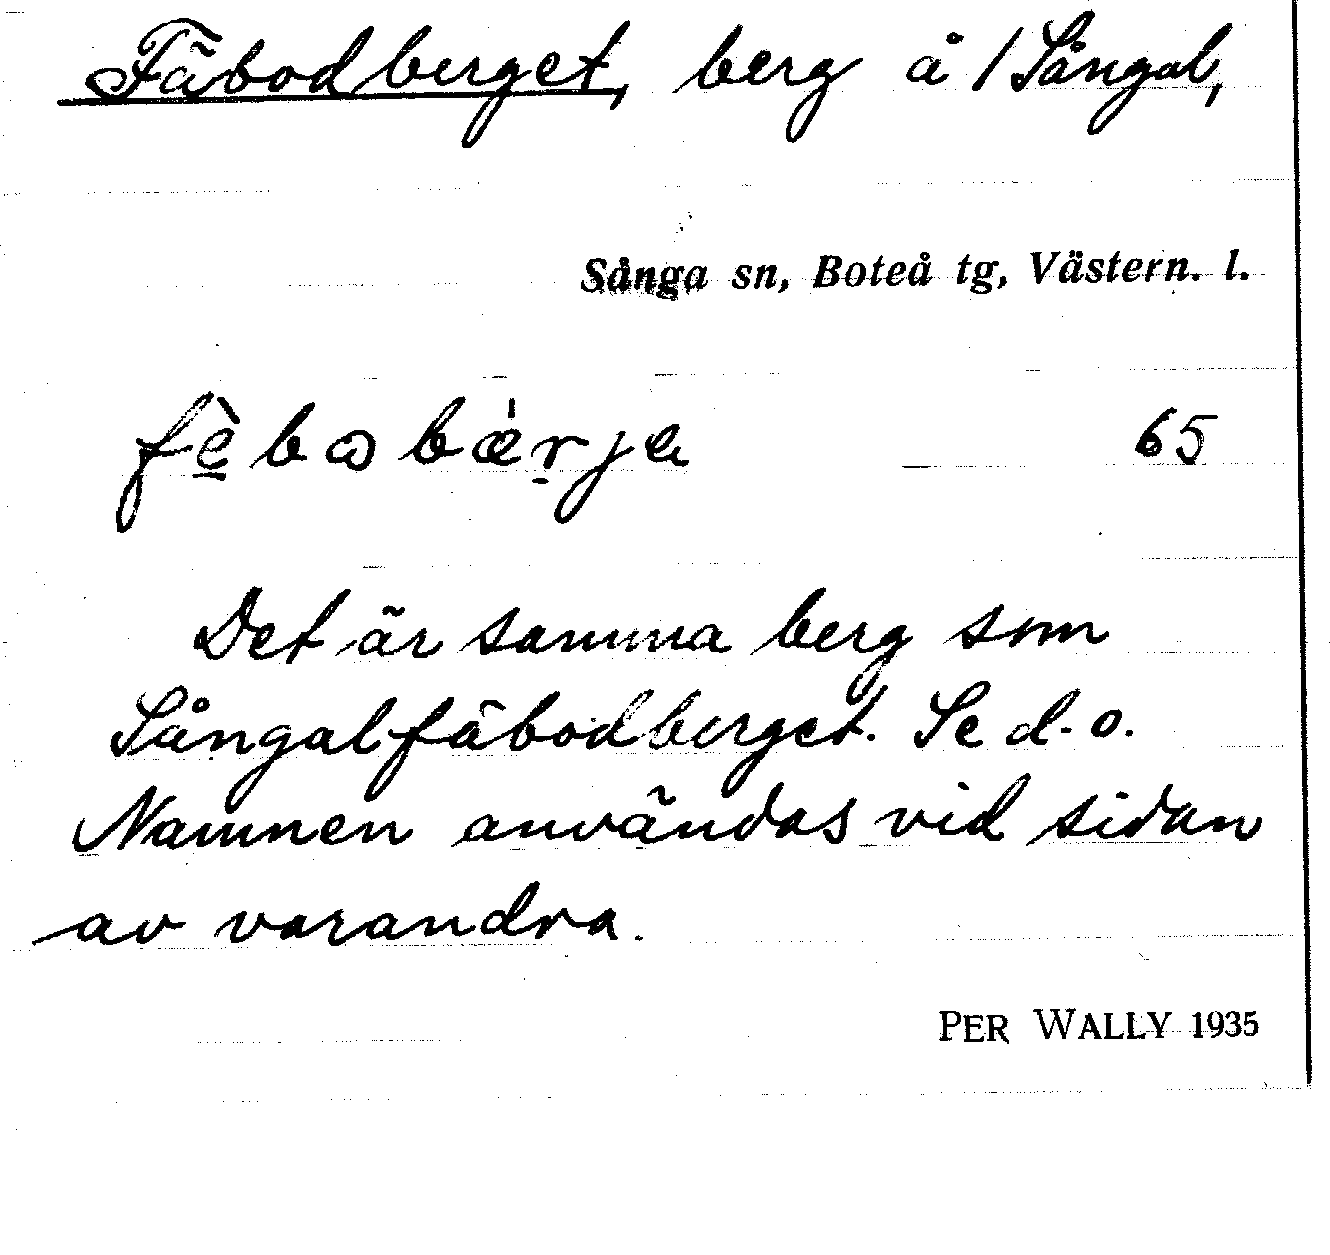 Fäbodberget, berg å / Sångal,
Sånga sn, Boteå tg, Västern. l.
fè̠bɷbæ̍r̠ja 65
Det är samma berg som
Sångalfäbodberget. Se d. o.
Namnen användas vid sidan
av varandra.
PER WALLY 1935